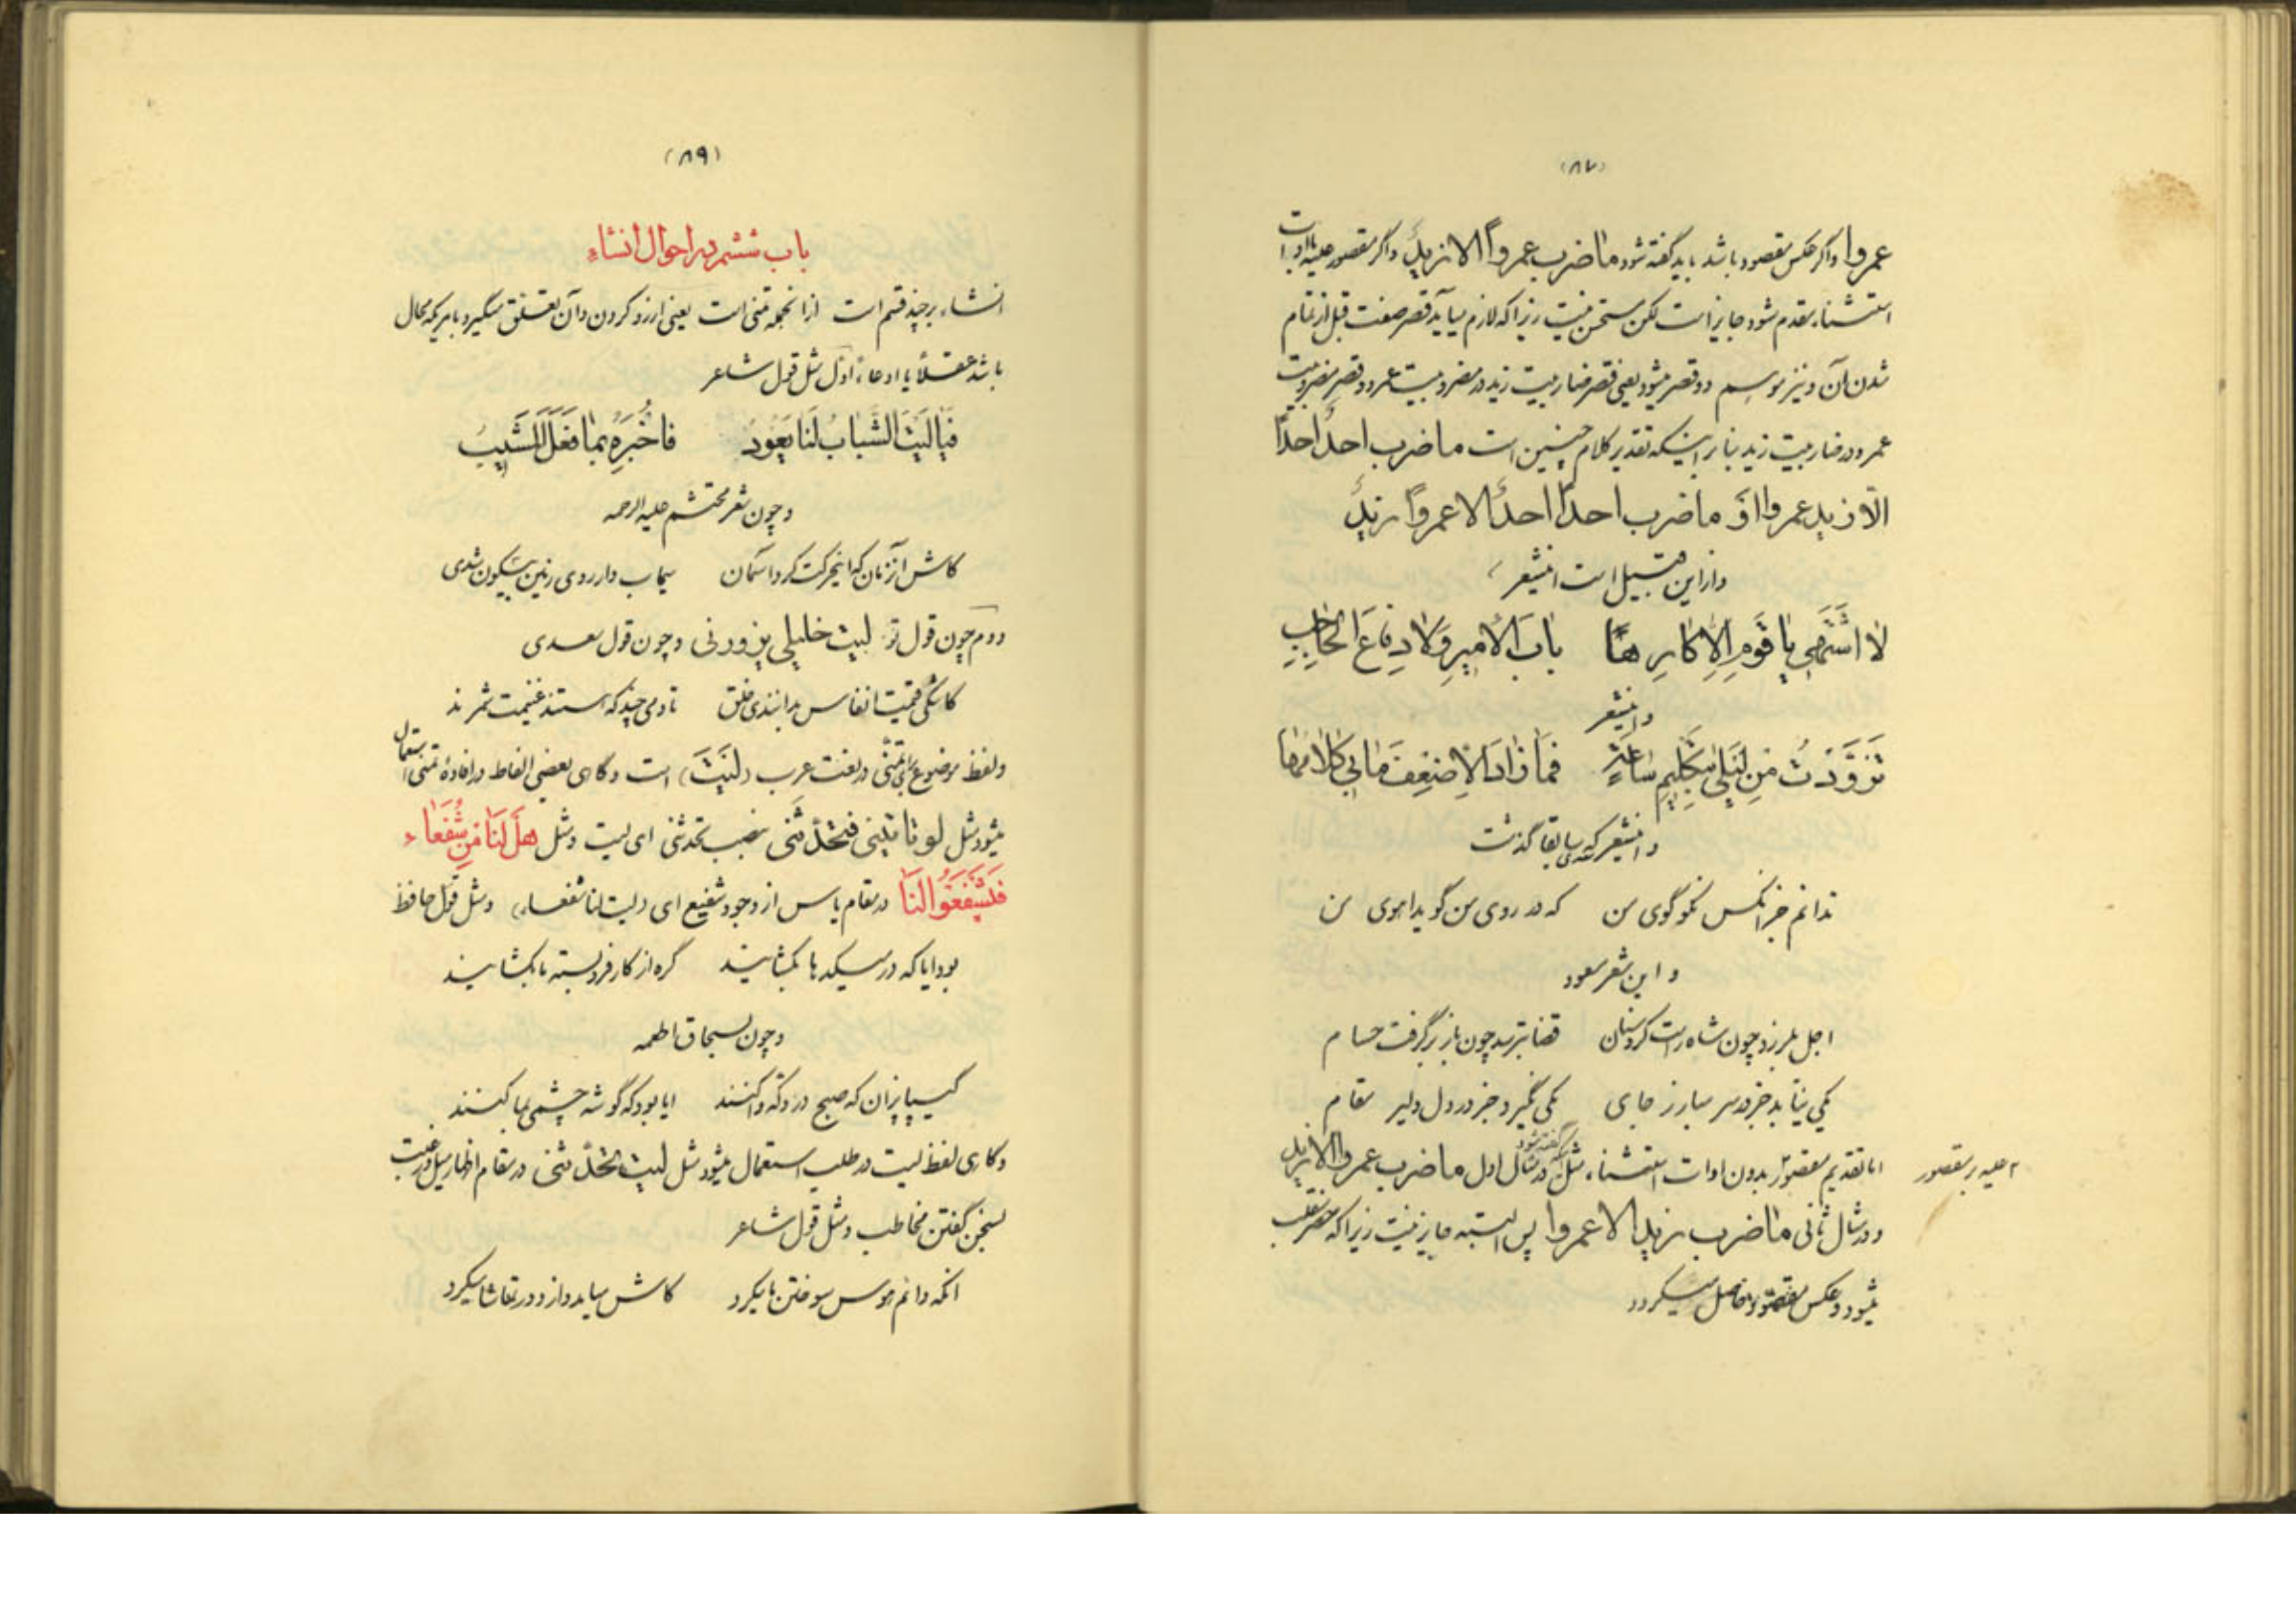 (۸۷)
عمروا واگر عکس مقصود باشد باید گفته شود ما ضرب عمرواً الا زیدٌ واگر مقصور علیه با ادات
استثناء مقدم شود جایز است لکن مستحسن نیست زیرا که لازم میآید قصر صفت قبل از تمام
شدن آن و نیز موسم دو قصر میشود یعنی قصر ضاربیت زید در مضروبیت عمرو و قصر مضروبیت
عمرو در ضاربیت زید بنابر اینکه تقدیر کلام چنین است ما ضرب احدٌ احداً
الّا زید عمروا اوَ ما ضرب احداً احدٌ الا عمرواً زیدٌ
واز این قبیل است اینشعر
لا اشتهی یا قومِ الا کارِهاً بابَ الأمیرِ وَلا دِفاعَ الحاجِبِ
و اینشعر
تَزَوَّدْتُ مِن لَیلی بِتَکلیمِ ساعَةٍ فَما زادَ الا ضِعفَ ما بی کلامُها
و اینشعر که سابقا گذشت
ندانم جز آنکس نکو گوی من که در روی من گوید اهوی من
و این شعر مسعود
اجل بلرزد چون شاه راست کرد سنان قضا بترسد چون باز برگرفت حسام
یکی نیابد جز در سر مبارز جای یکی نگیرد جز در دل دلیر مقام
اما تقدیم مقصور بدون ادات استثناء مثل آنکه در مثال اول ما ضرب عمروا الا زید
گفته شود
۲ علیه بر مقصور
و در مثال ثانی ما ضرب زید الا عمروا پس البته جایز نیست زیرا که حصر منقلب
میشود و عکس مقصود حاصل میگردد
(۸۹)
باب ششم در احوال انشاء
انشاء بر چند قسم است ازانجمله تمنی است یعنی ارزو کردن وان تعلق میگیرد بامریکه محال
باشد عقلاً یا ادعاءً اول مثل قول شاعر
فَیا لَیتَ الشَّبابَ لَنا یَعُودُ فاخُبِرَهُ بِما فَعَلَ المَشیبُ
و چون شعر محتشم علیه الرحمه
کاش انزمان که اینحرکت کرد اسمان سیماب وار روی زمین بیسکون شدی
دوم چون قول تو لیت خلیلی یزورنی و چون قول سعدی
کاشکی قیمت انفاس بدانندی خلق تا دمی چند که هستند غنیمت شمرند
ولفظ موضوع برای تمنّی در لغت عرب (لَیتَ) است و گاهی بعضی الفاظ در افادهٔ تمنی استعمال
میشود مثل لو تاتینی فتحدّثنی بنصب تحدثنی ای لیت و مثل هَل لَنا مِن شُفَعاء
فَیَشفَعُوا لَنا در مقام یاس از وجود شفیع ای (لیت لنا شفعاء) و مثل قول حافظ
بود ایا که در میکدها بگشایند گره از کار فروبسته ما بگشایند
و چون بسحاق اطعمه
کیپاپزان که صبح در دکه وا کنند ایا بود که گوشه چشمی بما کنند
و گاهی لفظ لیت در طلب استعمال میشود مثل لیت تحدّثنی در مقام اظهار میل و رغبت
بسخن گفتن مخاطب و مثل قول شاعر
انکه دائم هوس سوختن ما میکرد کاش میامد و از دور تماشا میکرد